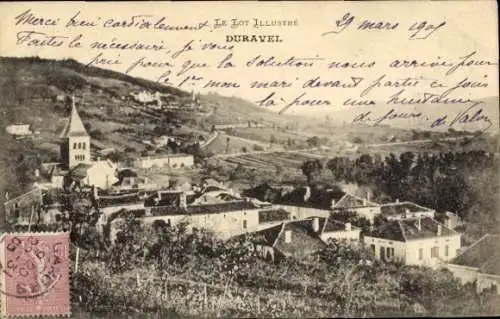 Merci bien cordialement
LE LOT ILLUSTRÉ
29 mars 1905
DURAVEL
faites le nécessaire, je vous
prie, pour que la solution nous arrive pour
le 1er mon mari devant partir ce jour
là pour une huitaine
de jours.